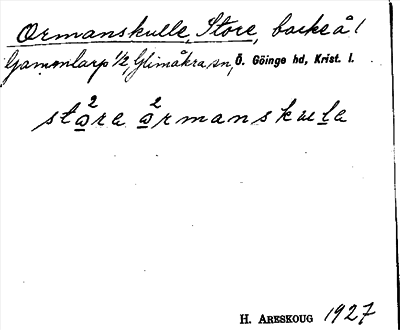 Ormanskulle, Store, backe å 1
Gammlarp 1/2, Glimåkra sn, Ö. Göinge hd, Krist. l.
sto²ra o²rmanskula
H. ARESKOUG 1927